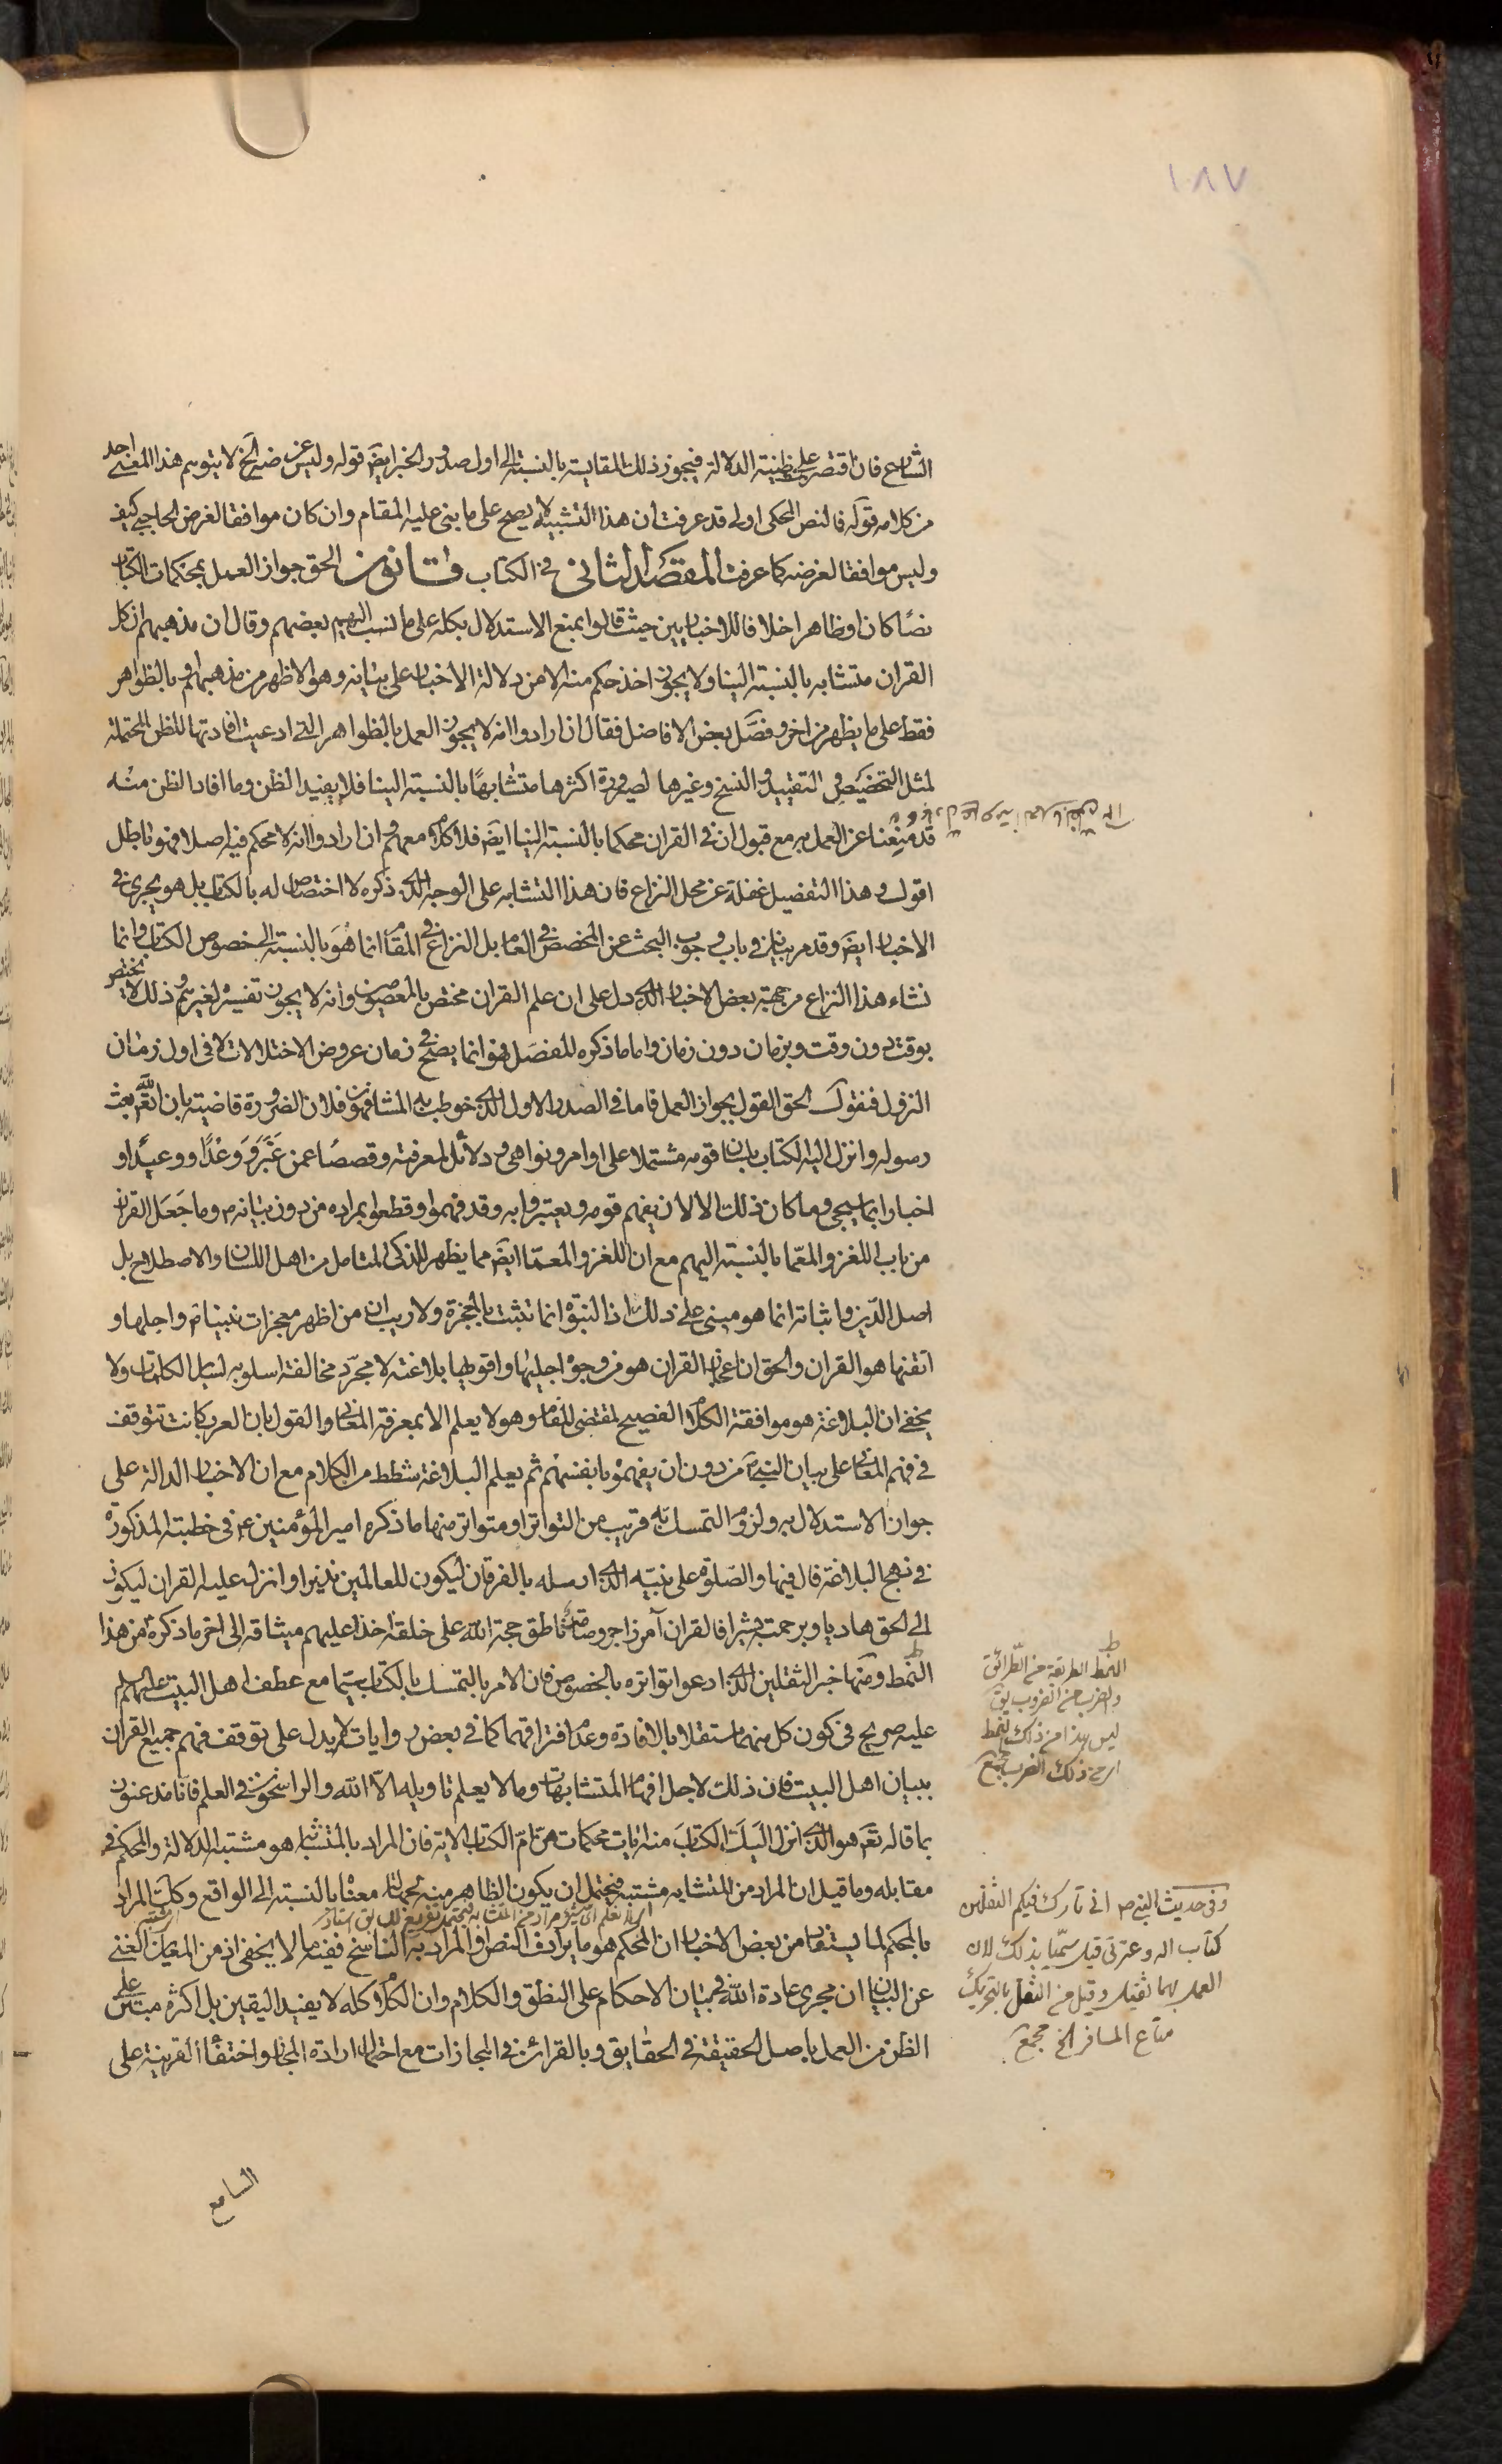 ١٨٧
الشارع فان اقتصر على ظنية الدلالة فيجوز ذلك المقايسة بالنسبة الى اول صدور الخبر ايضَ قوله وليس غرضه الخ لا يتوهم هذا المعنى احد
من كلامه قوله فالنص المحكى اولى قد عرفت ان هذا التشبيه لا يصح على ما بنى عليه المقام وان كان موافقا لغرض الحاجبى كيف
وليس موافقا لغرضه كما عرفت المقصد الثانى فى الكتاب قانون الحق جواز العمل بمحكمات الكتاب
نصًا كان او ظاهرا خلافا للاخباريين حيث قالوا بمنع الاستدلال بكله على ما نسب اليهم بعضهم وقال ان مذهبهم ان كل
القران متشابه بالنسبة الينا ولا يجوز اخذ حكم منه الا من دلالة الاخبار على بيانه وهو الاظهر من مذهبهم او بالظواهر
فقط على ما يظهر من اخر وفصّل بعض الافاضل فقال ان ارادوا انه لا يجوز العمل بالظواهر التى ادعيت افادتها للظن المحتملة
لمثل التخصيص والتقييد والنسخ وغيرها لصيرورة اكثرها متشابهًا بالنسبة الينا فلا يفيد الظن وما افاد الظن منه
قد منعنا عن العمل به مع قبول ان فى القران محكما بالنسبة الينا ايضَ فلا كلام معهم وان ارادوا انه لا محكم فيه اصلا فهو باطل
اقول وهذا التفصيل غفلة عن محل النزاع فان هذا التشابه على الوجه الذى ذكره لا اختصاص له بالكتاب بل هو يجرى فى
الاخبار ايضَ وقد مر بيانه فى باب وجوب البحث عن المخصص فى العام بل النزاع فى المقام انما هُوَ بالنسبة الى خصوص الكتاب وانما
نشاء هذا النزاع من جهة بعض الاخبار الذى دل على ان علم القران مختص بالمعصومين وانه لا يجوز تفسيره لغيرهم وذلك لا يختص
بوقت دون وقت وبزمان دون زمان واما ما ذكره المفصل فهو انما يصح فى زمان عروض الاختلالات لا فى اول زمان
النزول فنقول الحق القول بجواز العمل فاما فى الصدر الاول الذى خوطب به المشافهون فلان الضرورة قاضية بان الله تعَ بعث
رسوله وانزل اليه الكتاب بلسان قومه مشتملا على اوامر ونواهى ودلائل لمعرفته وقصصًا عمن غَبَرَ وَوَعْدًا ووعيدًا و
اخبارا بما سيجى وما كان ذلك الا لان يفهم قومه ويعتبروا به وقد فهموا وقطعوا بمراده من دون بيانه ص وما جَعَل القران
من باب اللغز والمعّما بالنسبة اليهم مع ان اللغز والمعمّا ايضَ مما يظهر للذكى المتامل من اهل اللسان والاصطلاح بل
اصل الدّين واثباته انما هو مبنى على ذلك اذ النبوّة انما تثبت بالمعجزة ولا ريب ان من اظهر معجزات نبيناص واجلها و
اتقنها هو القران والحق ان اعجاز القران هو من وجوه اجليها واقويها بلاغته لا مجرّد مخالفة اسلوبه لساير الكلمات ولا
يخفى ان البلاغة هو موافقة الكلام الفصيح لمقتضى المقام وهو لا يعلم الا بمعرفة المعانى والقول بان العرب كانت تتوقف
فى فهم المعانى على بيان النبى ص من دون ان يفهموه بانفسهم ثم يعلم البلاغة شطط من الكلام مع ان الاخبار الدالة على
جواز الاستدلال به ولزوم التمسك به قريب من التواتر او متواتر منها ما ذكره امير المؤمنين ع فى خطبته المذكورة
فى نهج البلاغة قال فيها والصّلوة على نبيّه الذى ارسله بالفرقان ليكون للعالمين نذيرا وانزل عليه القران ليكون
الى الحق هاديا وبرحمته بشيرا فالقران آمر زاجر وصامت ناطق حجة الله على خلقه اخذ عليهم ميثاقه الى اخر ما ذكره من هذا
النمط ومنها خبر الثقلين الذى ادعوا تواتره بالخصوص فان الامر بالتمسك بالكتاب سيّما مع عطف اهل البيت عليهم السلم
عليه صريح فى كون كل منهما مستقلا بالافادة وعدم افتراقهما كما فى بعض روايات لا يدل على توقف فهم جميع القران
ببيان اهل البيت فان ذلك لاجل افهام المتشابهات وما لا يعلم تاويله الّا الله والراسخون فى العلم فانا مذعنون
بما قاله تعَ هو الذى انزل اليك الكتاب منه ايات محكمات هن امّ الكتاب الاية فان المراد بالمتشابه هو مشتبه الدلالة والمحكم فى
مقابله وما قيل ان المراد من المتشابه مشتبه فيحتمل ان يكون الظاهر منه محكما معناه بالنسبة الى الواقع وكك المراد
بالمحكم لما يستفاد من بعض الاخبار ان المحكم هو ما يرادف النص او المراد به الناسخ ففيه ما لا يخفى اذ من العيان الغنى
عن البيان ان مجرى عادة الله فى بيان الاحكام على النطق والكلام وان الكلام كله لا يفيد اليقين بل اكثره مبتن على
الظن من العمل باصل الحقيقة فى الحقايق وبالقرائن فى المجازات مع احتمال ارادة المجاز واختفاء القرينة على
السامع
النمط الطريقة من الطّرائق
والضرب من الضروب يق
ليس هذا من ذلك النمط
اى من ذلك الضرب مجمع
وفى حديث النبى ص انى تارك فيكم الثقلين
كتاب الله وعترتى قيل سمّيا بذلك لان
العمل بهما ثقيل وقيل من الثقل بالتحريك
متاع المسافر الخ مجمع